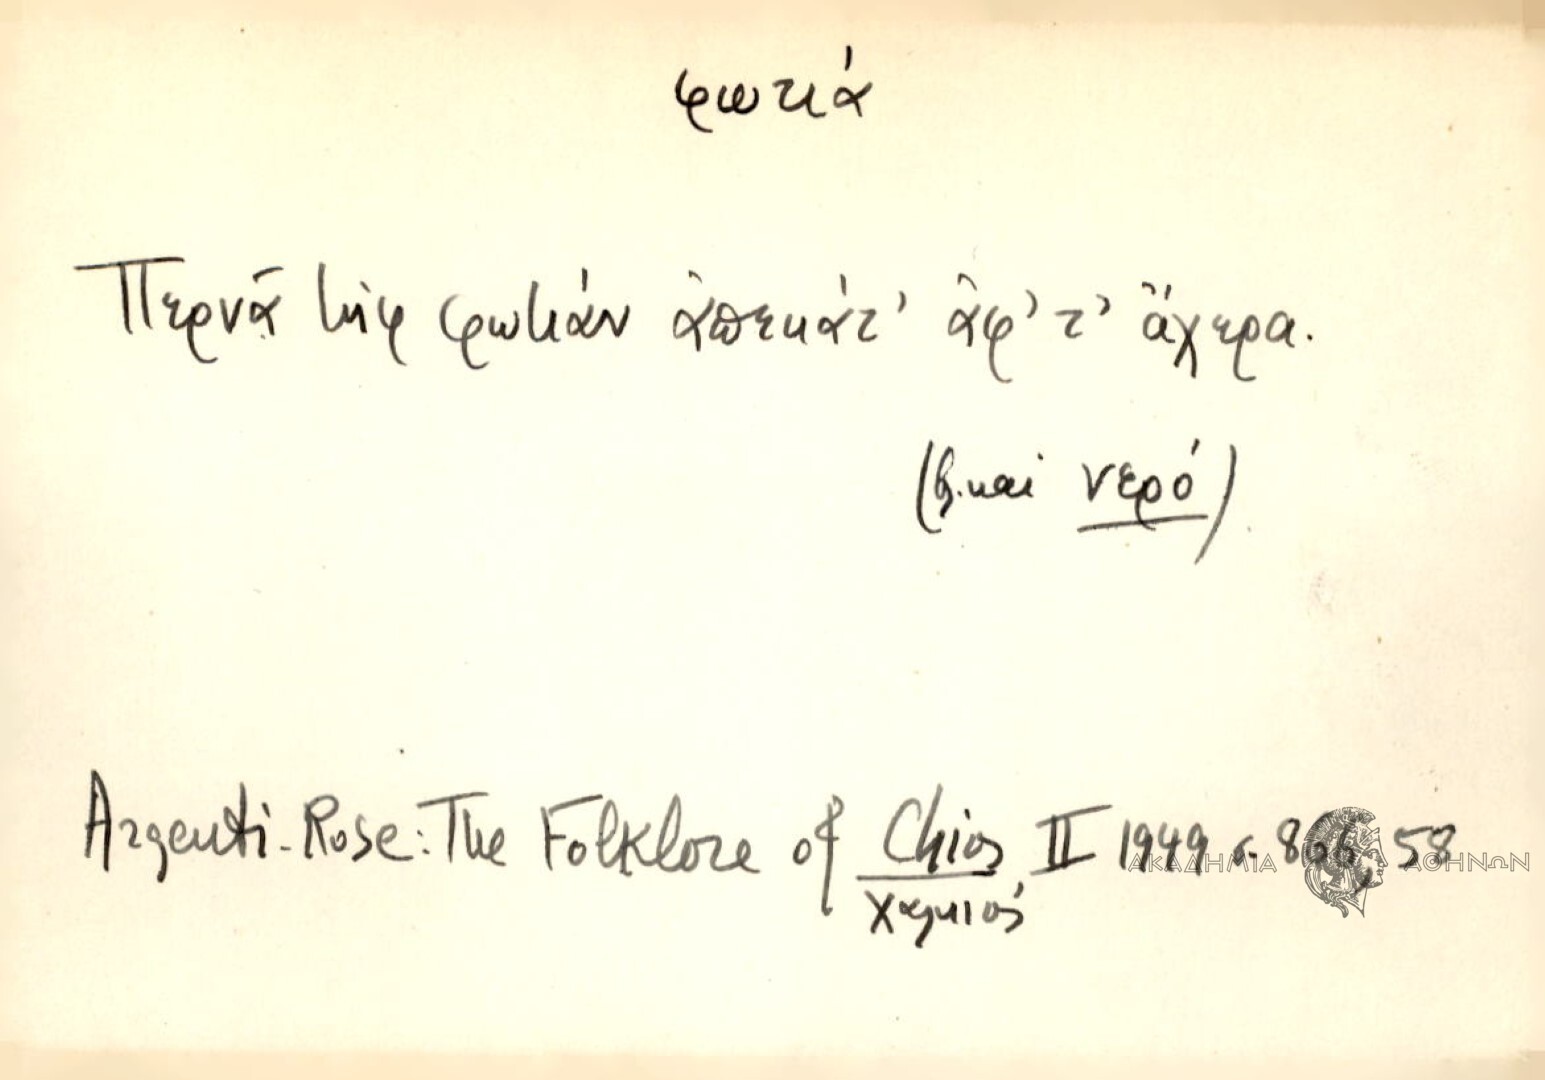 φωτιά
Περνᾶ τὴφ φωτιὰν ἀπεκάτ' ἀφ' τ' ἄχερα.
(β. καὶ νερό)
Argenti-Rose: The Folklore of Chios II 1949 σ. 58
ΑΚΑΔΗΜΙΑ ΑΘΗΝΩΝ